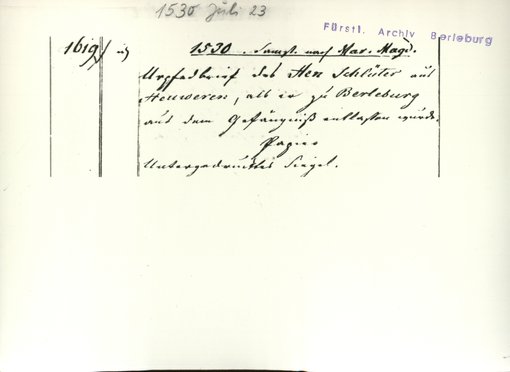 1530 Juli 23
Fürstl. Archiv Berleburg
1619
1530. Sampt. nach Mar. Magd.
Urpfedbrief des Hen Schlüter aus
Heuweren, als er zu Berleburg
aus dem Gefängniß entlassen wurde.
Papier
Untergedrucktes Siegel.